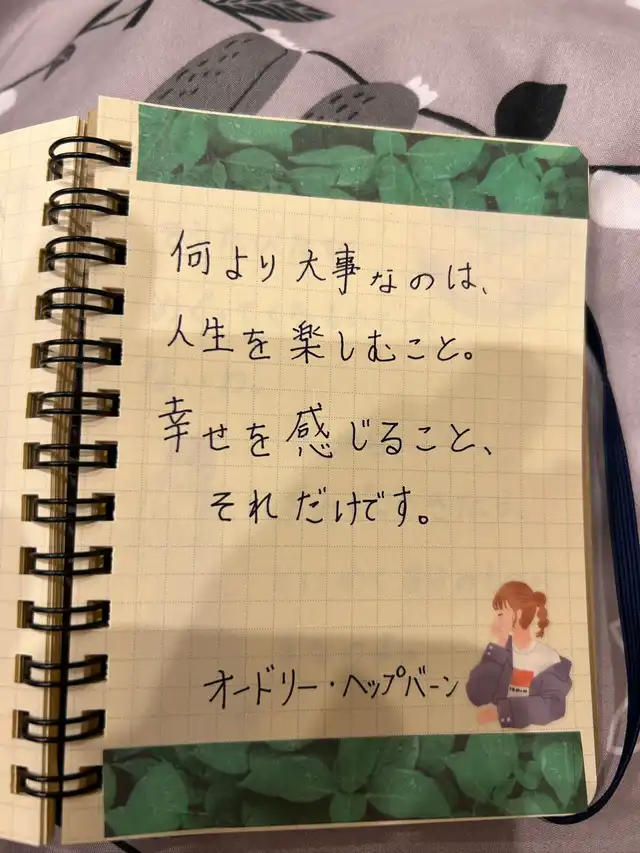 何より大事なのは、
人生を楽しむこと。
幸せを感じること、
それだけです。
オードリー・ヘップバーン